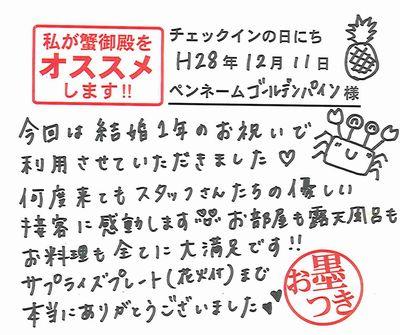 私が蟹御殿を
オススメ
します!!
チェックインの日にち
H28年12月11日
ペンネームゴールデンパイン様
今回は結婚1年のお祝いで
利用させていただきました♡
何度来てもスタッフさんたちの優しい
接客に感動します お部屋も露天風呂も
お料理も全てに大満足です!!
サプライズプレート(花火付)まで
本当にありがとうございました♥♥
お墨つき